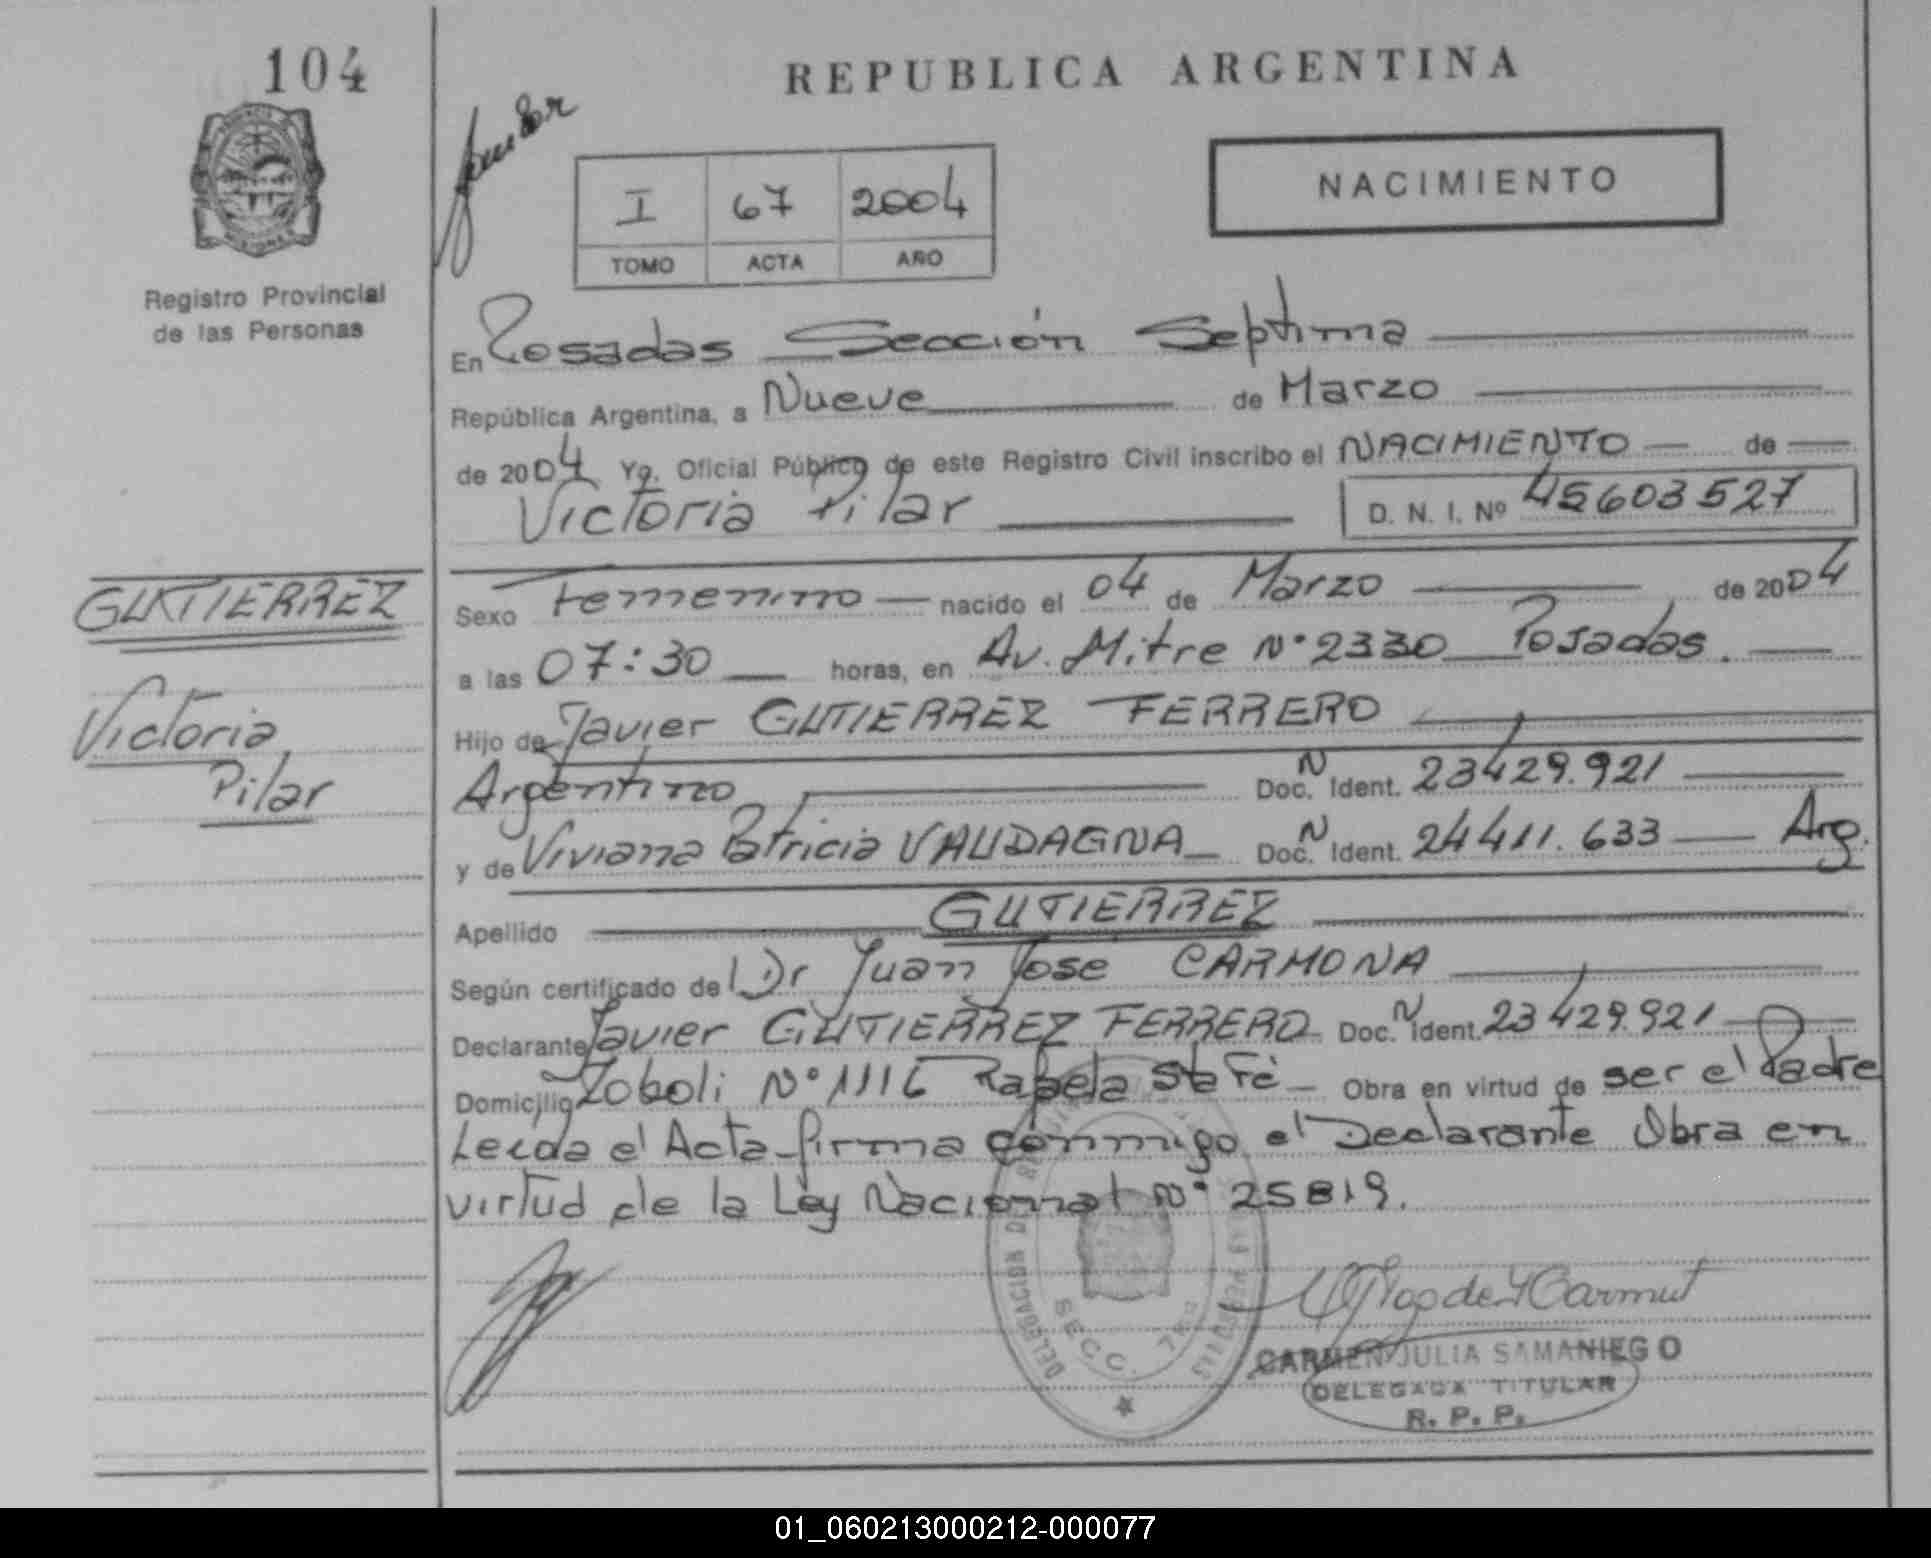 104
REPUBLICA ARGENTINA
NACIMIENTO
I 67 2004
TOMO ACTA AÑO
Registro Provincial
de las Personas
En Posadas Sección Septima
República Argentina, a Nueve de Marzo
de 2004 Yo, Oficial Público de este Registro Civil inscribo el NACIMIENTO de
Victoria Pilar D. N. I. Nº 45603527
GUTIERREZ
Victoria
Pilar
Sexo Femenino nacido el 04 de Marzo de 2004
a las 07:30 horas, en Av. Mitre Nº 2330 Posadas.
Hijo de Javier GUTIERREZ FERRERO
Argentino Doc. N Ident. 23429.921
y de Viviana Patricia VAUDAGNA Doc. N Ident. 24411.633 Arg.
Apellido GUTIERREZ
Según certificado de Dr Juan Jose CARMONA
Declarante Javier GUTIERREZ FERRERO Doc. N Ident. 23429.921
Domicilio Zoboli Nº 1116 Rafaela Sta Fé Obra en virtud de ser el Padre
Leida el Acta firma conmigo el Declarante Obra en
virtud de la Ley Nacional Nº 25819.
SECC. 7ma
CARMEN JULIA SAMANIEGO
DELEGADA TITULAR
R. P. P.
01_060213000212-000077